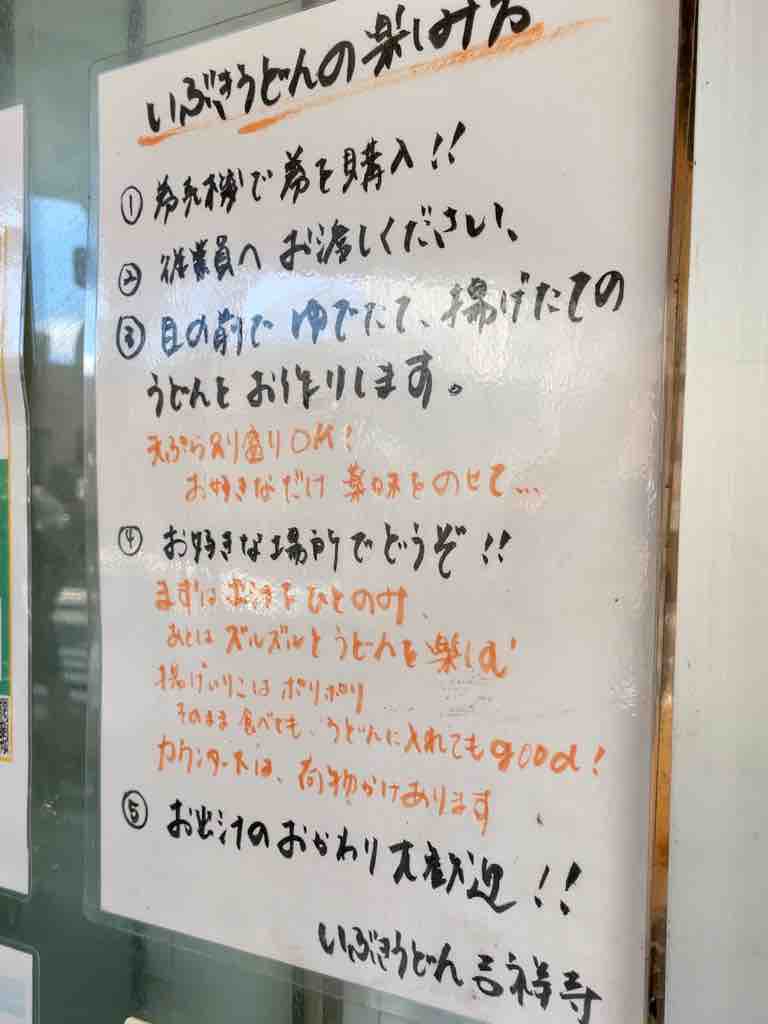 いぶきうどんの楽しみ方
① 券売機で券を購入!!
② 従業員へお渡しください、
③ 目の前でゆでたて、揚げたての
うどんをお作りします。
天ぷら別盛りOK!
お好きなだけ薬味をのせて…
④ お好きな場所でどうぞ!!
まずはお汁をひとのみ、
あとはズルズルとうどんを楽しむ
揚げいりこはポリポリ
そのまま食べても、うどんに入れてもgood!
カウンター下は、荷物かけあります
⑤ お出汁のおかわり大歓迎!!
いぶきうどん 吉祥寺